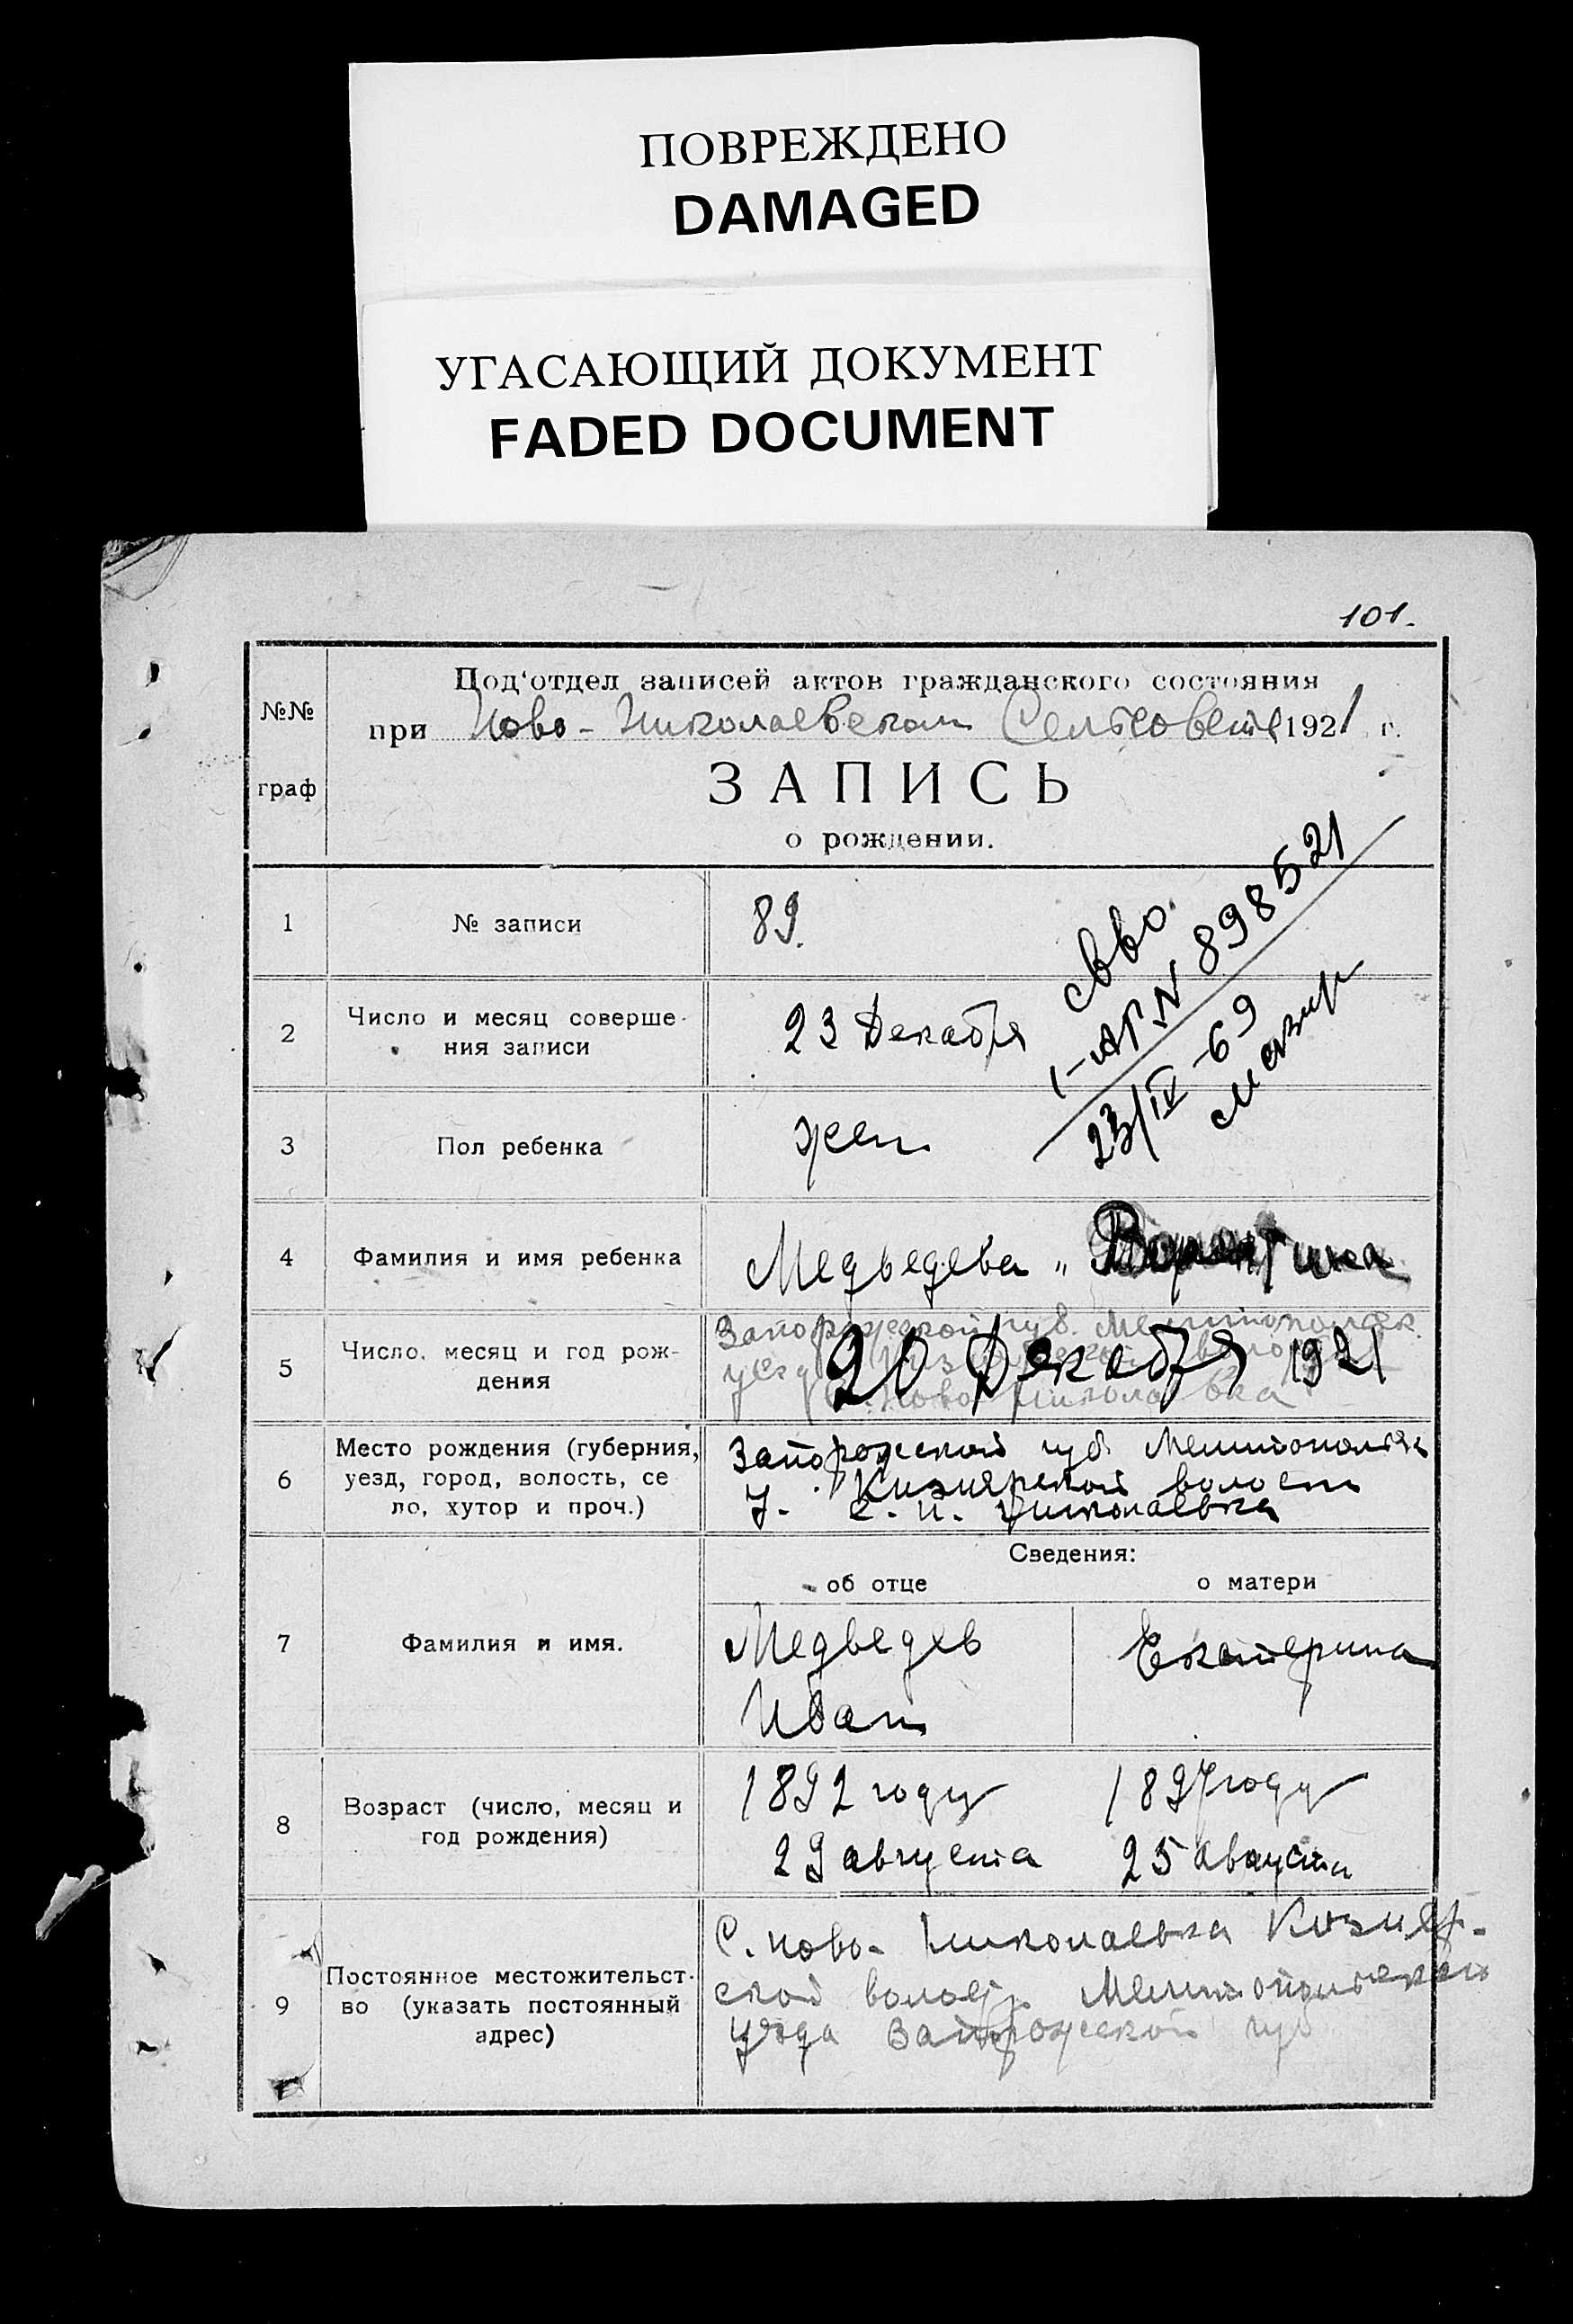 ПОВРЕЖДЕНО
DAMAGED
УГАСАЮЩИЙ ДОКУМЕНТ
FADED DOCUMENT
101.
№№ граф
Под'отдел записей актов гражданского состояния
при Ново-Николаевском Сельсовете 1921 г.
ЗАПИСЬ
о рождении.
свво.
I-АП N 898521
23/IV-69
1 № записи 89.
2 Число и месяц соверше-
ния записи 23 Декабря
3 Пол ребенка жен
4 Фамилия и имя ребенка Медведева "
5 Число, месяц и год рож-
дения 20 Декабря 1921
Запорожской губ. Мелитопольск.
уезд
с. Ново Николаевка
6 Место рождения (губерния,
уезд, город, волость, се
ло, хутор и проч.)
Запорожской губ Мелитопольск
у. Кизиярской волости
с. Н. Николаевка
Сведения:
об отце о матери
7 Фамилия и имя.
Медведев Екатерина
Иван
8 Возраст (число, месяц и
год рождения)
1892 году 1897 году
29 августа 25 августа
9 Постоянное местожительст-
во (указать постоянный
адрес)
С. Ново-Николаевка Кизиер-
ской волости Мелитопольской
уезда Запорожской губ